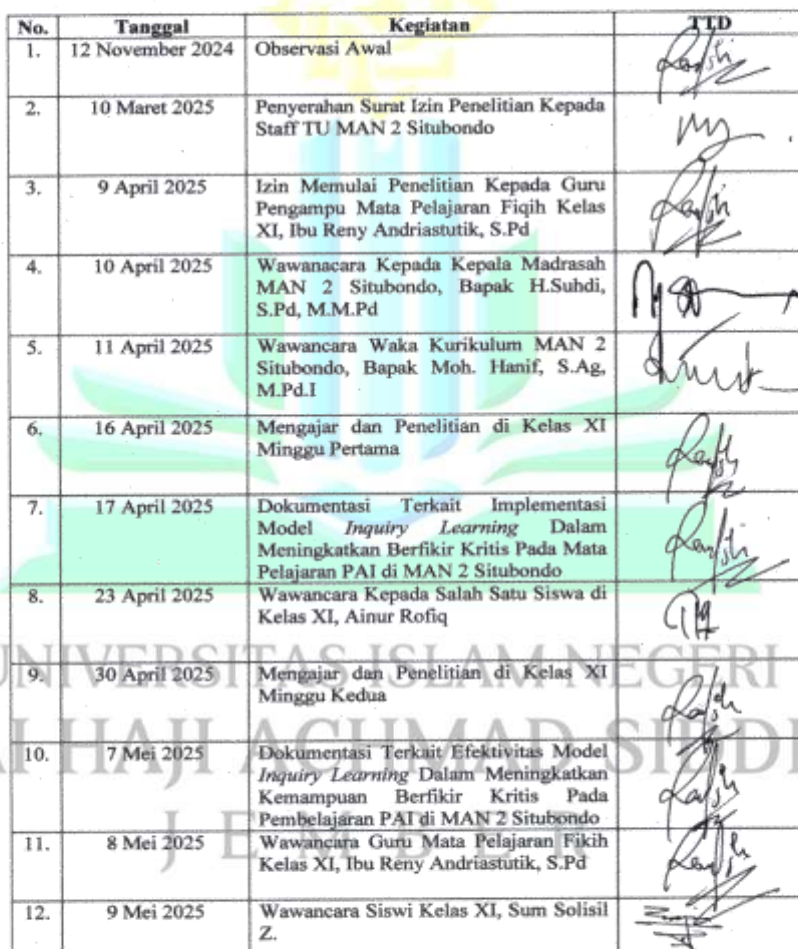 No. Tanggal Kegiatan TTD
1. 12 November 2024 Observasi Awal
2. 10 Maret 2025 Penyerahan Surat Izin Penelitian Kepada
Staff TU MAN 2 Situbondo
3. 9 April 2025 Izin Memulai Penelitian Kepada Guru
Pengampu Mata Pelajaran Fiqih Kelas
XI, Ibu Reny Andriastutik, S.Pd
4. 10 April 2025 Wawanacara Kepada Kepala Madrasah
MAN 2 Situbondo, Bapak H.Suhdi,
S.Pd, M.M.Pd
5. 11 April 2025 Wawancara Waka Kurikulum MAN 2
Situbondo, Bapak Moh. Hanif, S.Ag,
M.Pd.I
6. 16 April 2025 Mengajar dan Penelitian di Kelas XI
Minggu Pertama
7. 17 April 2025 Dokumentasi Terkait Implementasi
Model Inquiry Learning Dalam
Meningkatkan Berfikir Kritis Pada Mata
Pelajaran PAI di MAN 2 Situbondo
8. 23 April 2025 Wawancara Kepada Salah Satu Siswa di
Kelas XI, Ainur Rofiq
9. 30 April 2025 Mengajar dan Penelitian di Kelas XI
Minggu Kedua
10. 7 Mei 2025 Dokumentasi Terkait Efektivitas Model
Inquiry Learning Dalam Meningkatkan
Kemampuan Berfikir Kritis Pada
Pembelajaran PAI di MAN 2 Situbondo
11. 8 Mei 2025 Wawancara Guru Mata Pelajaran Fikih
Kelas XI, Ibu Reny Andriastutik, S.Pd
12. 9 Mei 2025 Wawancara Siswi Kelas XI, Sum Solisil
Z.
UNIVERSITAS ISLAM NEGERI
HAJI ACHMAD SIDDI
JEMBER